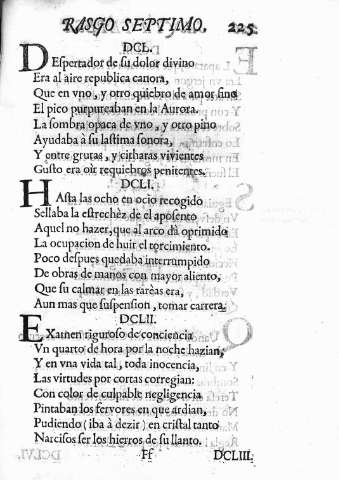 RASGO SEPTIMO. 225
DCL.
DEspertador de su dolor divino
Era al aire republica canora,
Que en vno, y otro quiebro de amor fino
El pico purpureaban en la Aurora.
La sombra opaca de vno, y otro pino
Ayudaba à su lastima sonora,
Y entre grutas, y citharas vivientes
Gusto era oir requiebros penitentes.
DCLI.
HAsta las ocho en ocio recogido
Sellaba la estrechèz de el aposento
Aquel no hazer, que al arco dà oprimido
La ocupacion de huir el torcimiento.
Poco despues quedaba interrumpido
De obras de manos con mayor aliento,
Que su calmar en las tarèas era,
Aun mas que suspension, tomar carrera.
DCLII.
EXamen riguroso de conciencia
Vn quarto de hora por la noche hazian,
Y en vna vida tal, toda inocencia,
Las virtudes por cortas corregian:
Con color de culpable negligencia
Pintaban los fervores en que ardian,
Pudiendo (iba à dezir) en cristal tanto
Narcisos ser los hierros de su llanto.
Ff DCLIII.